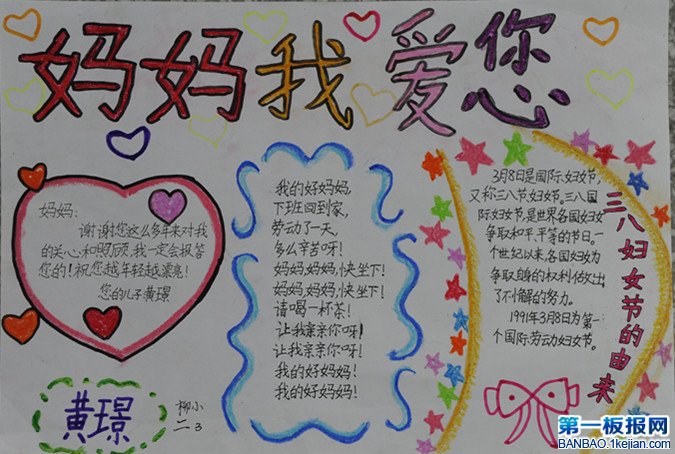 妈妈我爱您
妈妈:
谢谢您这么多年来对我
的关心和照顾,我一定会报答
您的!祝您越年轻越漂亮!
您的儿子黄璟
我的好妈妈,
下班回到家,
劳动了一天,
多么辛苦呀!
妈妈,妈妈,快坐下!
妈妈,妈妈,快坐下!
请喝一杯茶!
让我亲亲你呀!
让我亲亲你呀!
我的好妈妈!
我的好妈妈!
3月8日是国际妇女节,
又称三八节,妇女节。三八国
际妇女节,是世界各国妇女
争取和平、平等的节日。一
个世纪以来,各国妇女为
争取自身的权利做出
了不懈的努力。
1991年3月8日为第一
个国际劳动妇女节。
三八妇女节的由来
黄璟
柳小
二3
第一板报网
BANBAO.1kejian.com